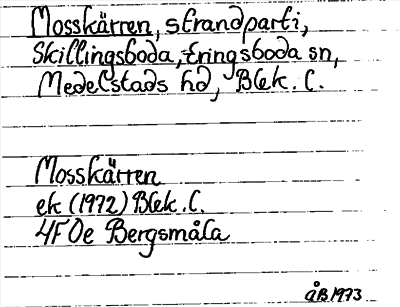 Mosskärren, strandparti,
Skillingsboda, Eringsboda sn,
Medelstads hd, Blek. l.
Mosskärren
ek (1972) Blek. l.
4F 0e Bergsmåla
åB 1973